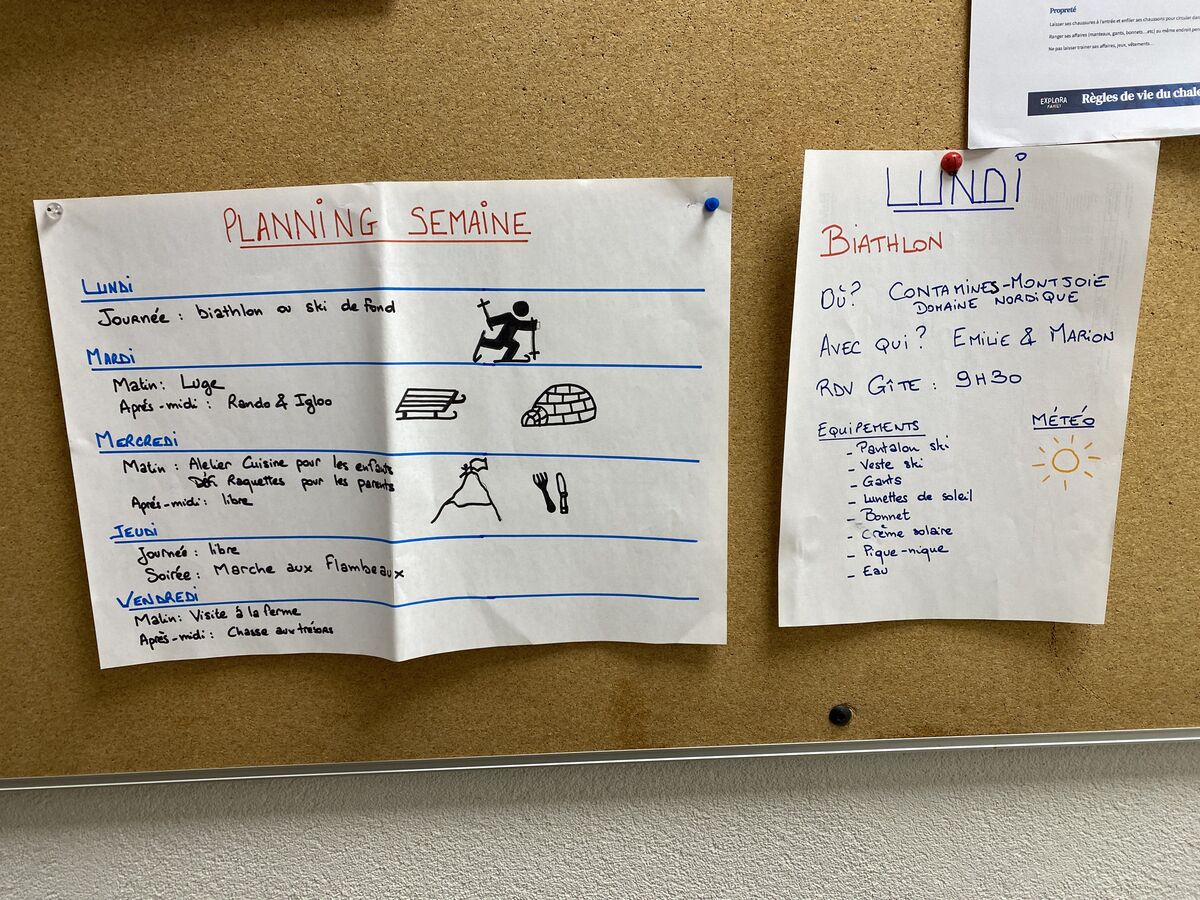 Propreté
Laisser ses chaussures à l'entrée et enfiler ses chaussons pour circuler dan
Ranger ses affaires (manteaux, gants, bonnets...etc) au même endroit pen
Ne pas laisser trainer ses affaires, jeux, vêtements...
EXPLORA
FAMILY
Règles de vie du chale
PLANNING SEMAINE
LUNDI
Journée : biathlon ou ski de fond
MARDI
Matin : Luge
Aprés-midi : Rando & Igloo
MERCREDI
Matin : Atelier Cuisine pour les enfants
Défi Raquettes pour les parents
Aprés-midi : libre
JEUDI
Journée : libre
Soirée : Marche aux Flambeaux
VENDREDI
Matin : Visite à la ferme
Après-midi : Chasse aux trésors
LUNDI
BIATHLON
OÙ ? CONTAMINES-MONTJOIE
DOMAINE NORDIQUE
AVEC QUI ? EMILIE & MARION
RDV GÎTE : 9H30
EQUIPEMENTS
- Pantalon ski
- Veste ski
- Gants
- Lunettes de soleil
- Bonnet
- Crème solaire
- Pique-nique
- Eau
MÉTÉO